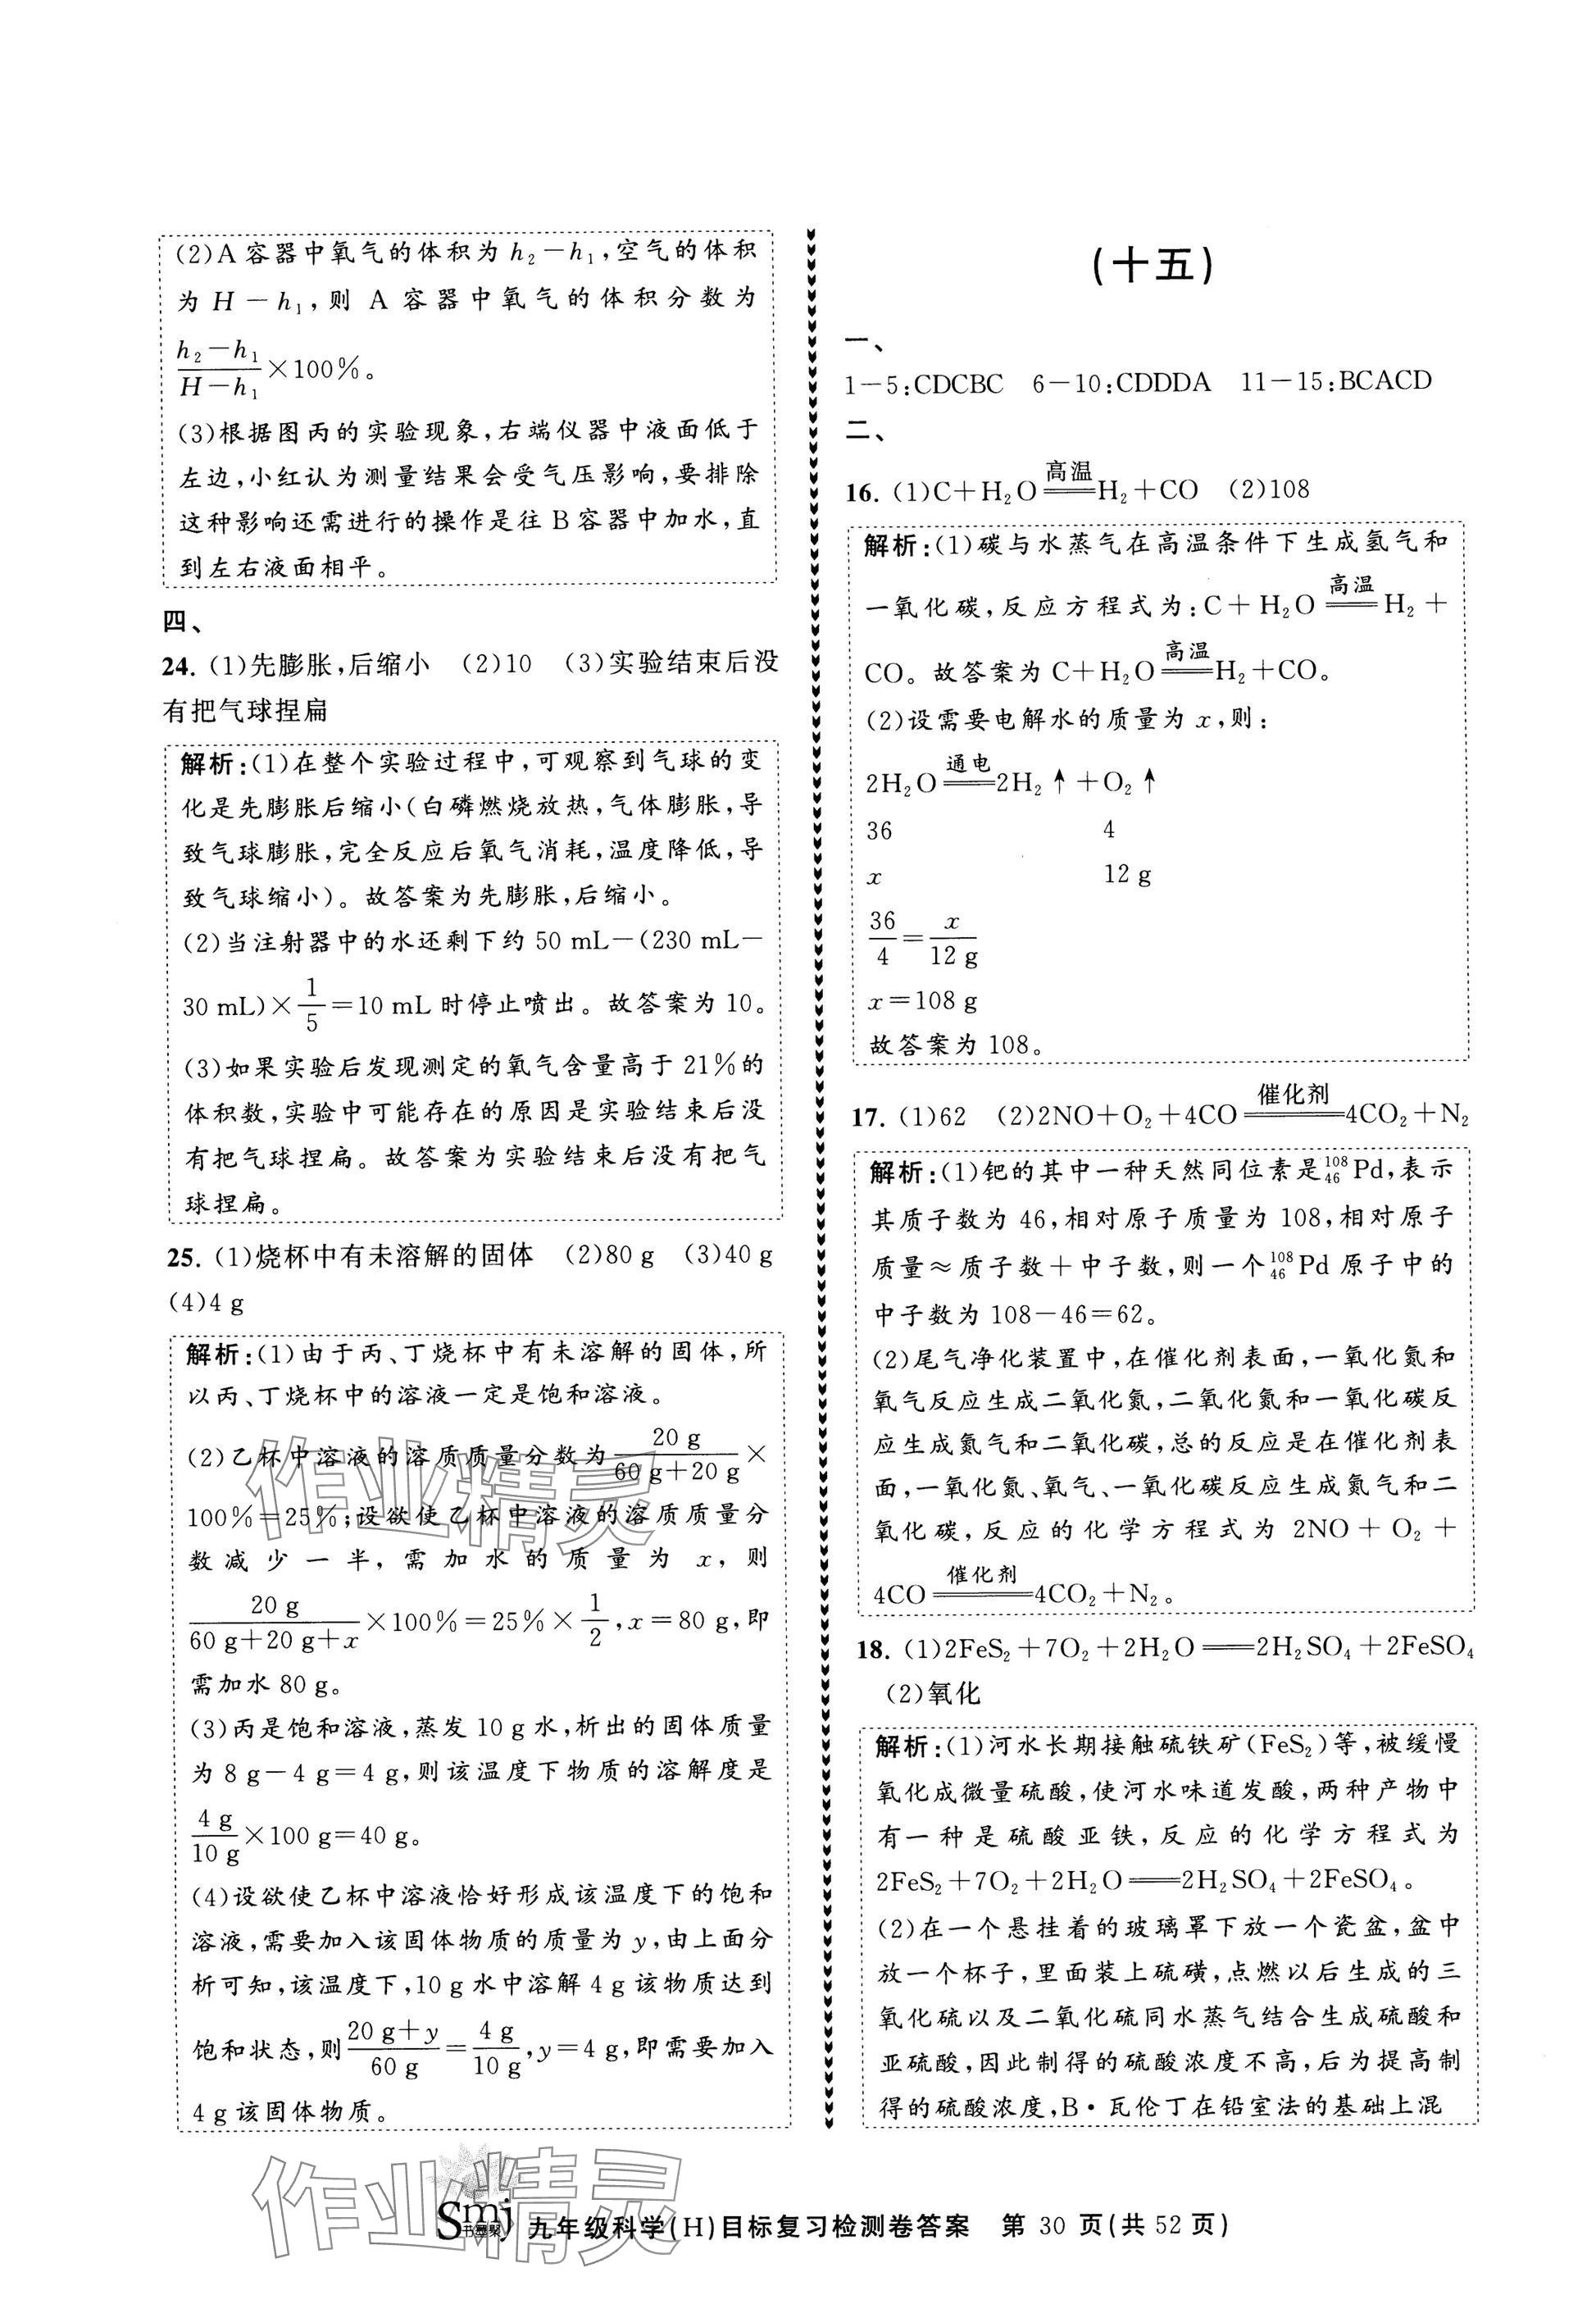 (2)A 容器中氧气的体积为 h₂－h₁,空气的体积
为 H－h₁,则 A 容器中氧气的体积分数为
(h₂－h₁)/(H－h₁)×100%。
(3)根据图丙的实验现象,右端仪器中液面低于
左边,小红认为测量结果会受气压影响,要排除
这种影响还需进行的操作是往 B 容器中加水,直
到左右液面相平。
四、
24. (1)先膨胀,后缩小 (2)10 (3)实验结束后没
有把气球捏扁
解析:(1)在整个实验过程中,可观察到气球的变
化是先膨胀后缩小(白磷燃烧放热,气体膨胀,导
致气球膨胀,完全反应后氧气消耗,温度降低,导
致气球缩小)。故答案为先膨胀,后缩小。
(2)当注射器中的水还剩下约 50 mL－(230 mL－
30 mL)×1/5＝10 mL 时停止喷出。故答案为 10。
(3)如果实验后发现测定的氧气含量高于 21%的
体积数,实验中可能存在的原因是实验结束后没
有把气球捏扁。故答案为实验结束后没有把气
球捏扁。
25. (1)烧杯中有未溶解的固体 (2)80 g (3)40 g
(4)4 g
解析:(1)由于丙、丁烧杯中有未溶解的固体,所
以丙、丁烧杯中的溶液一定是饱和溶液。
(2)乙杯中溶液的溶质质量分数为 20 g/(60 g＋20 g)×
100%＝25%;设欲使乙杯中溶液的溶质质量分
数减少一半,需加水的质量为 x,则
20 g/(60 g＋20 g＋x)×100%＝25%×1/2,x＝80 g,即
需加水 80 g。
(3)丙是饱和溶液,蒸发 10 g 水,析出的固体质量
为 8 g－4 g＝4 g,则该温度下物质的溶解度是
4 g/10 g×100 g＝40 g。
(4)设欲使乙杯中溶液恰好形成该温度下的饱和
溶液,需要加入该固体物质的质量为 y,由上面分
析可知,该温度下,10 g 水中溶解 4 g 该物质达到
饱和状态,则(20 g＋y)/60 g＝4 g/10 g,y＝4 g,即需要加入
4 g 该固体物质。
(十五)
一、
1－5:CDCBC 6－10:CDDDA 11－15:BCACD
二、
16. (1)C＋H₂O ═高温═ H₂＋CO (2)108
解析:(1)碳与水蒸气在高温条件下生成氢气和
一氧化碳,反应方程式为:C＋H₂O ═高温═ H₂＋
CO。故答案为 C＋H₂O ═高温═ H₂＋CO。
(2)设需要电解水的质量为 x,则:
2H₂O ═通电═ 2H₂↑＋O₂↑
36 4
x 12 g
36/4＝x/12 g
x＝108 g
故答案为 108。
17. (1)62 (2)2NO＋O₂＋4CO ═催化剂═ 4CO₂＋N₂
解析:(1)钯的其中一种天然同位素是¹⁰⁸₄₆Pd,表示
其质子数为 46,相对原子质量为 108,相对原子
质量≈质子数＋中子数,则一个¹⁰⁸₄₆Pd 原子中的
中子数为 108－46＝62。
(2)尾气净化装置中,在催化剂表面,一氧化氮和
氧气反应生成二氧化氮,二氧化氮和一氧化碳反
应生成氮气和二氧化碳,总的反应是在催化剂表
面,一氧化氮、氧气、一氧化碳反应生成氮气和二
氧化碳,反应的化学方程式为 2NO＋O₂＋
4CO ═催化剂═ 4CO₂＋N₂。
18. (1)2FeS₂＋7O₂＋2H₂O ══ 2H₂SO₄＋2FeSO₄
(2)氧化
解析:(1)河水长期接触硫铁矿(FeS₂)等,被缓慢
氧化成微量硫酸,使河水味道发酸,两种产物中
有一种是硫酸亚铁,反应的化学方程式为
2FeS₂＋7O₂＋2H₂O ══ 2H₂SO₄＋2FeSO₄。
(2)在一个悬挂着的玻璃罩下放一个瓷盆,盆中
放一个杯子,里面装上硫磺,点燃以后生成的三
氧化硫以及二氧化硫同水蒸气结合生成硫酸和
亚硫酸,因此制得的硫酸浓度不高,后为提高制
得的硫酸浓度,B·瓦伦丁在铅室法的基础上混
作业精灵
作业精灵
Smj
书墨聚
九年级科学(H)目标复习检测卷答案 第 30 页(共 52 页)